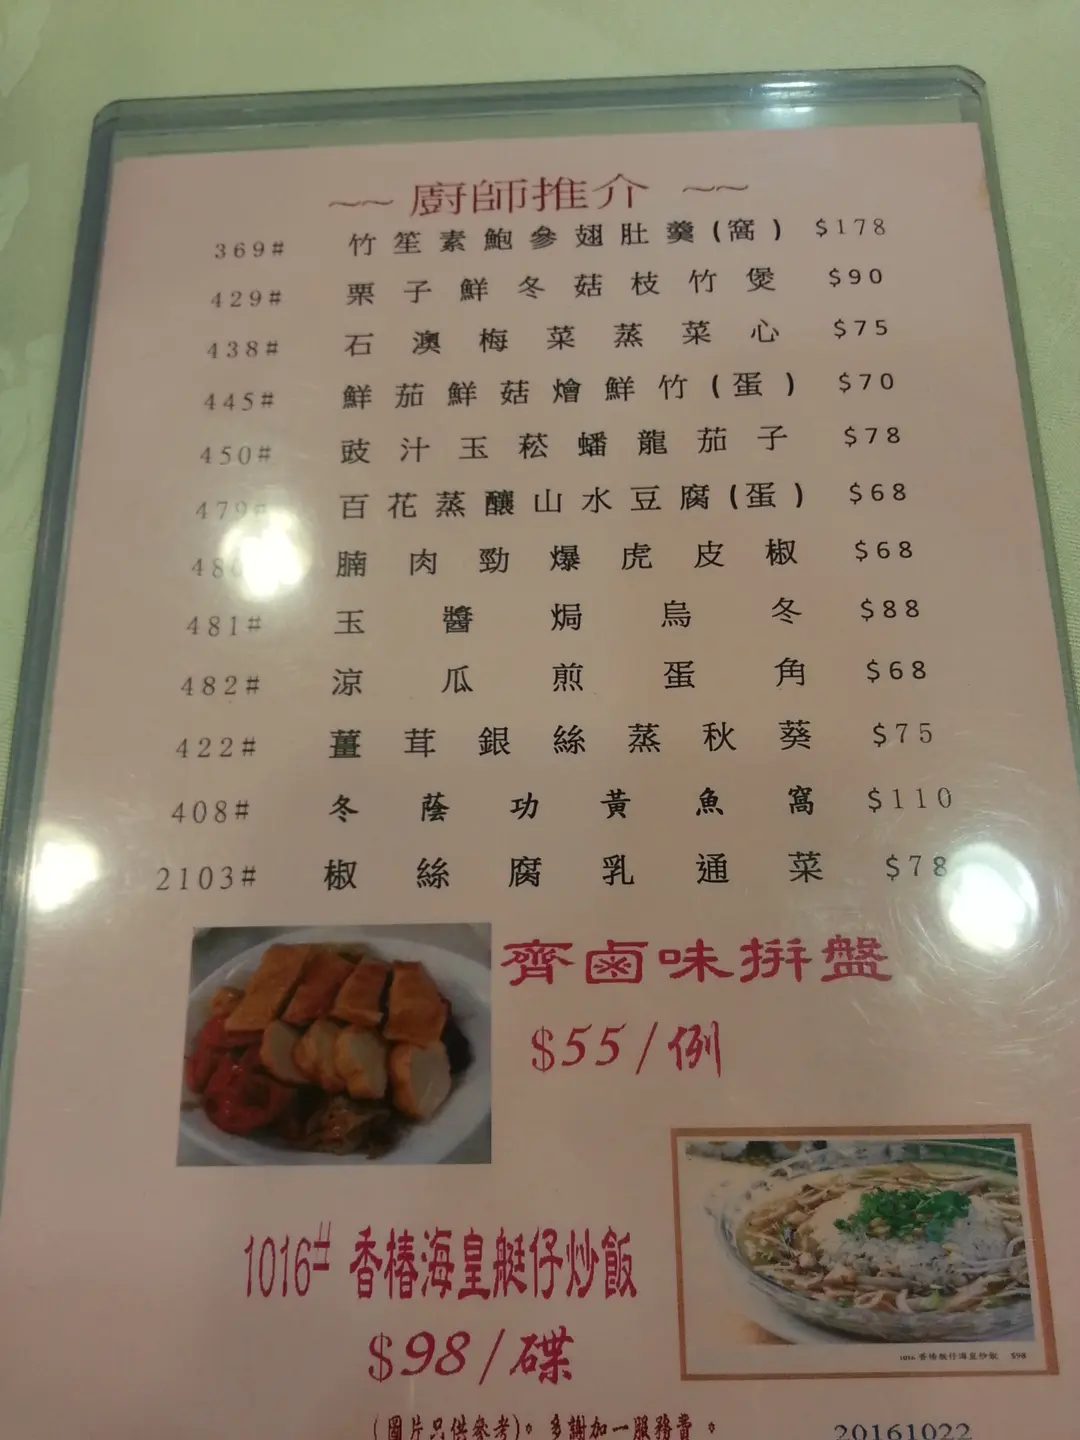 ~~ 廚師推介 ~~
369# 竹笙素鮑參翅肚羹(窩) $178
429# 栗子鮮冬菇枝竹煲 $90
438# 石澳梅菜蒸菜心 $75
445# 鮮茄鮮菇燴鮮竹(蛋) $70
450# 豉汁玉菘蟠龍茄子 $78
479# 百花蒸釀山水豆腐(蛋) $68
480 腩肉勁爆虎皮椒 $68
481# 玉醬焗烏冬 $88
482# 涼瓜煎蛋角 $68
422# 薑茸銀絲蒸秋葵 $75
408# 冬蔭功黃魚窩 $110
2103# 椒絲腐乳通菜 $78
齊鹵味拼盤
$55/例
1016# 香椿海皇艇仔炒飯
$98/碟
1016 香椿艇仔海皇炒飯 $98
(圖片只供參考)。多謝加一服務費。
20161022